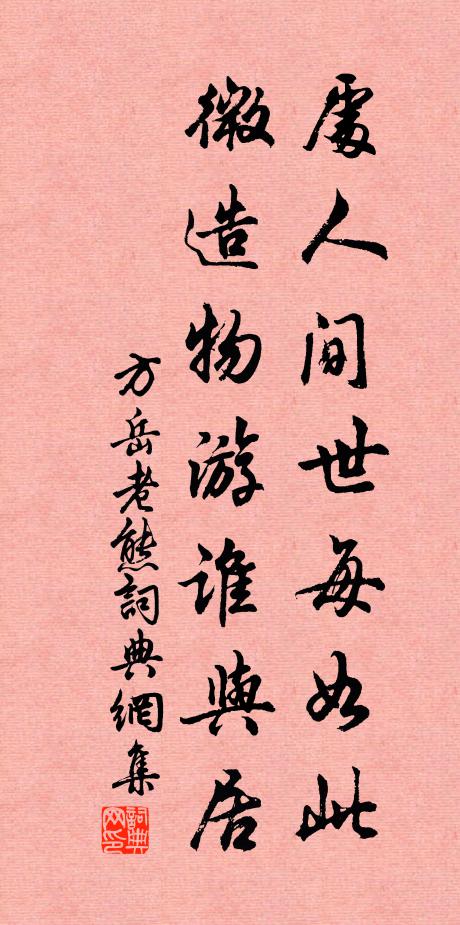 處人間世每如此
微造物游誰與居
方岳老熊詞典網集
詞典
网印